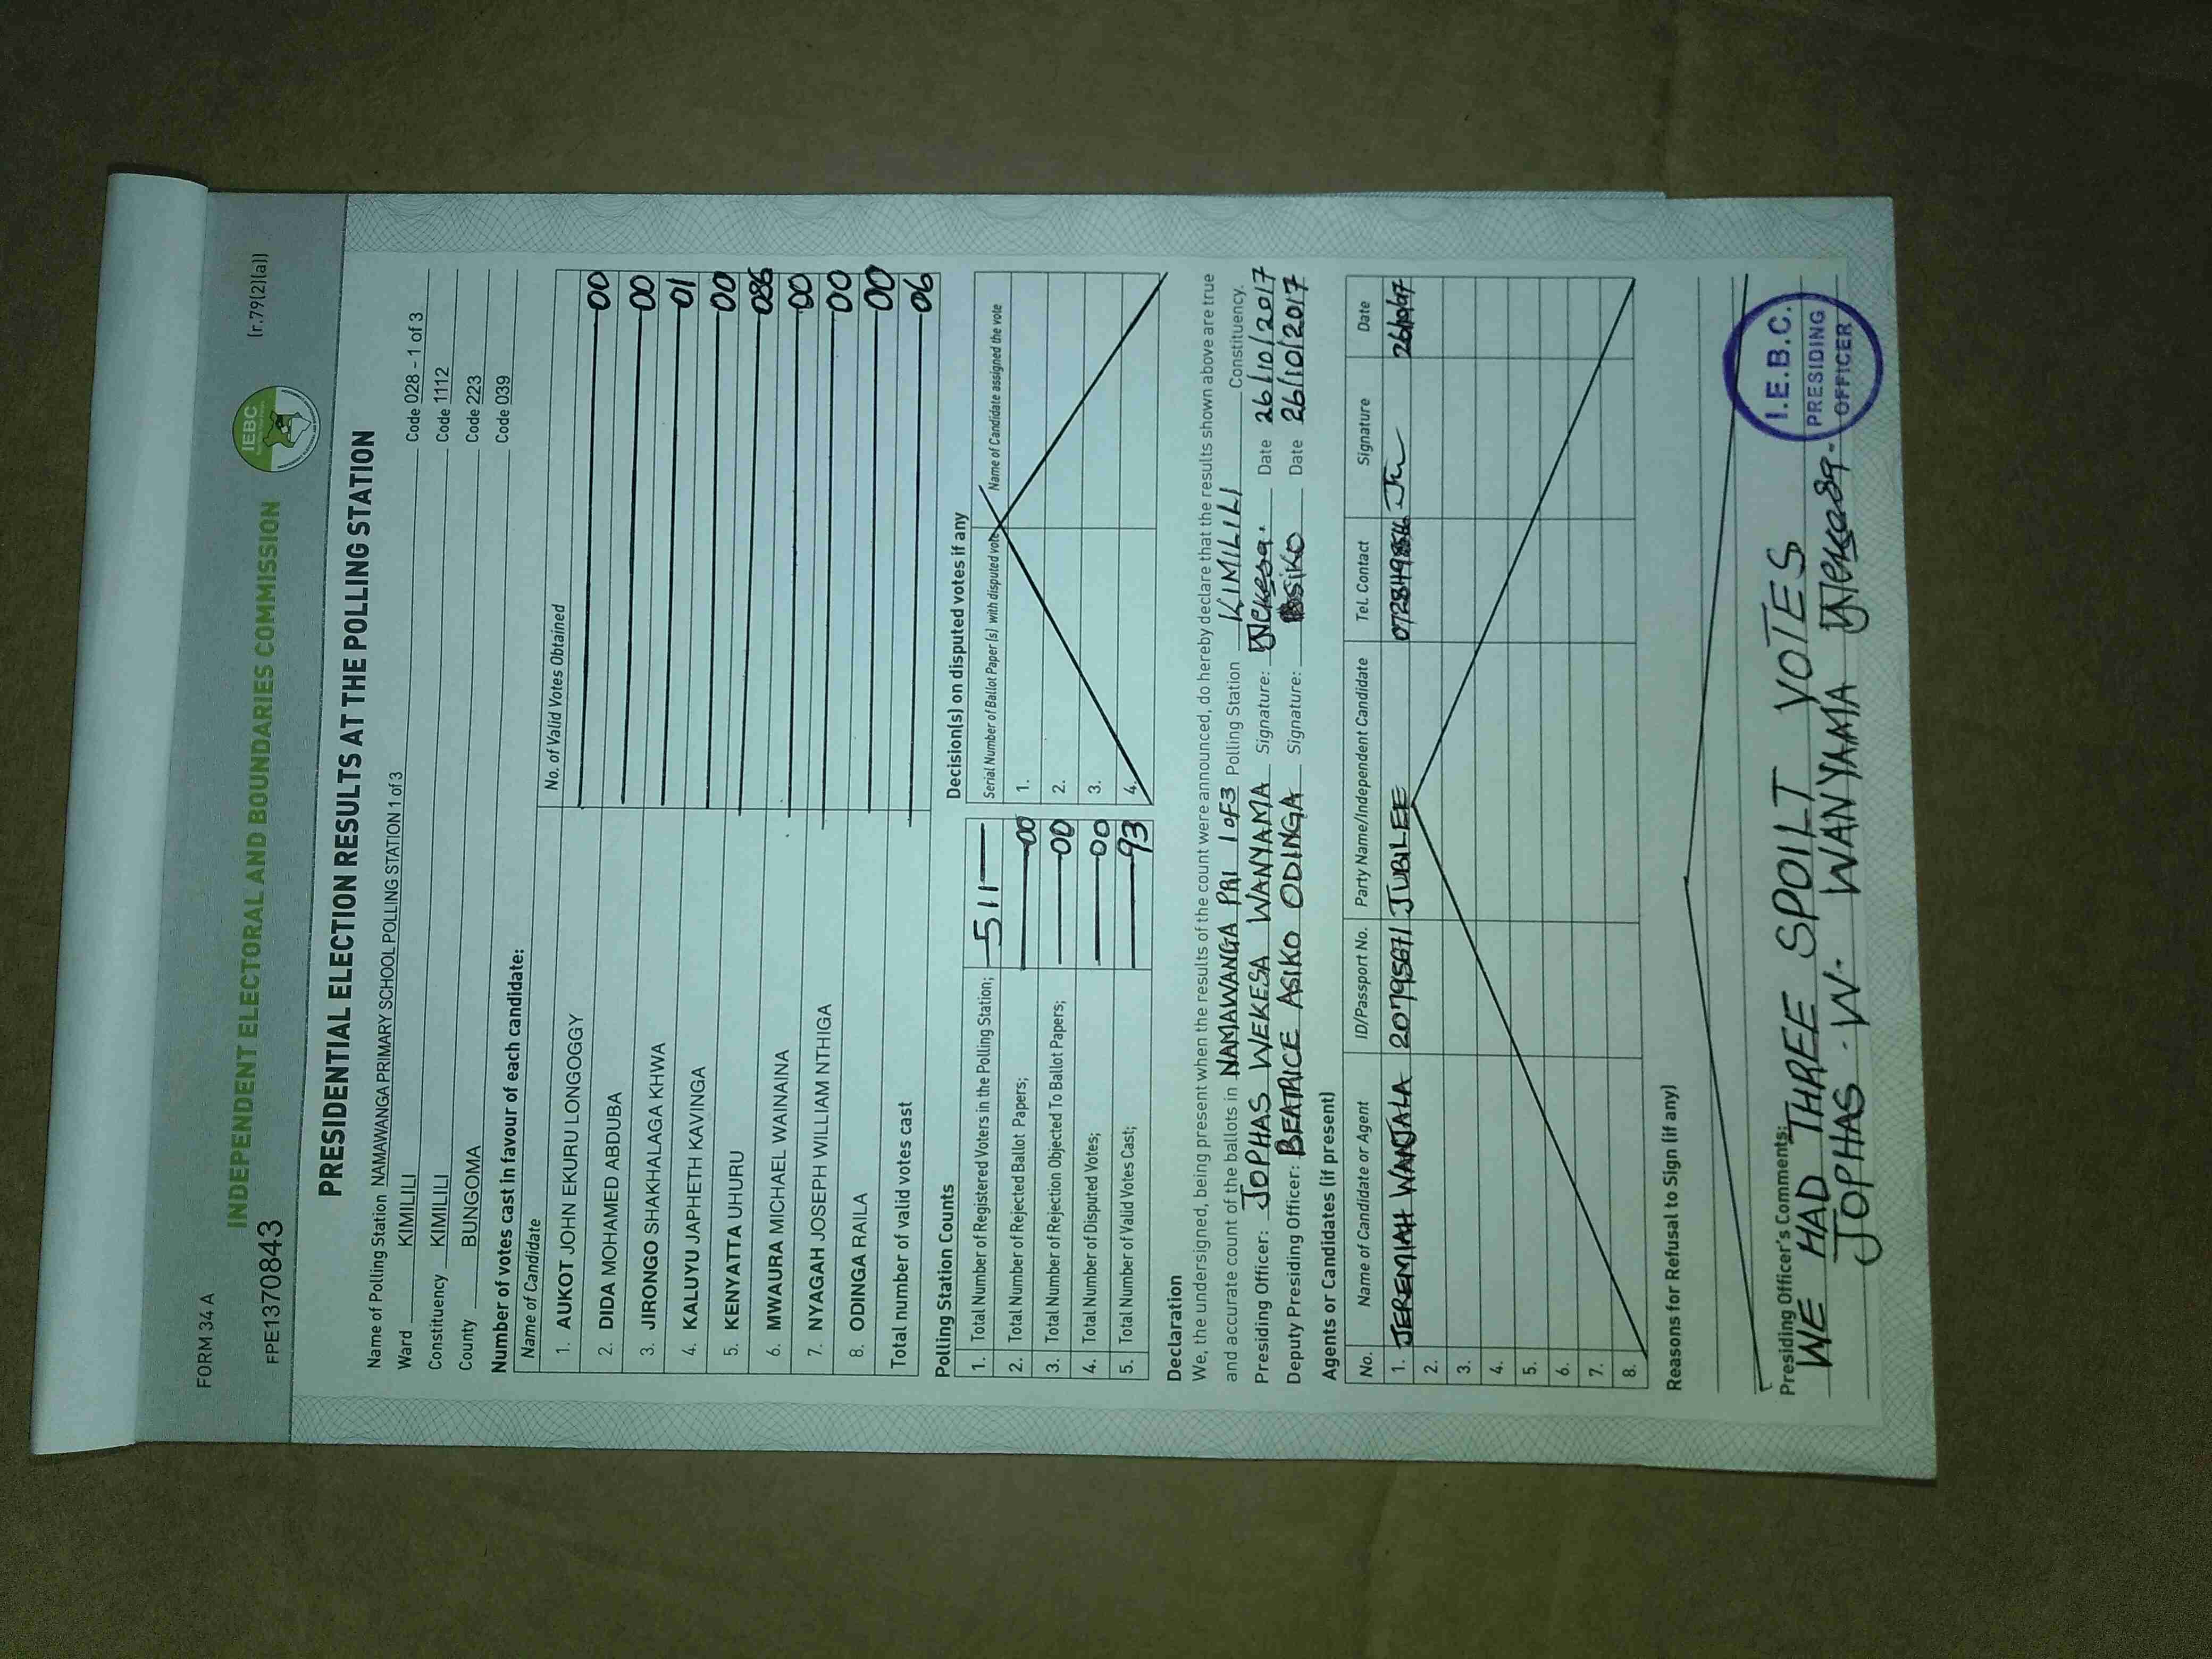 FORM 34 A
(r.79(2)(a))
INDEPENDENT ELECTORAL AND BOUNDARIES COMMISSION
IEBC
FPE1370843
PRESIDENTIAL ELECTION RESULTS AT THE POLLING STATION
Name of Polling Station NAMAWANGA PRIMARY SCHOOL POLLING STATION 1 of 3 Code 028 - 1 of 3
Ward KIMILILI Code 1112
Constituency KIMILILI Code 223
County BUNGOMA Code 039
Number of votes cast in favour of each candidate:
Name of Candidate No. of Valid Votes Obtained
1. AUKOT JOHN EKURU LONGOGGY 00
2. DIDA MOHAMED ABDUBA 00
3. JIRONGO SHAKHALAGA KHWA 01
4. KALUYU JAPHETH KAVINGA 00
5. KENYATTA UHURU 086
6. MWAURA MICHAEL WAINAINA 00
7. NYAGAH JOSEPH WILLIAM NTHIGA 00
8. ODINGA RAILA 00
Total number of valid votes cast 06
Polling Station Counts
1. Total Number of Registered Voters in the Polling Station; 511
2. Total Number of Rejected Ballot Papers; 00
3. Total Number of Rejection Objected To Ballot Papers; 00
4. Total Number of Disputed Votes; 00
5. Total Number of Valid Votes Cast; 93
Decision(s) on disputed votes if any
Serial Number of Ballot Paper (s) with disputed vote Name of Candidate assigned the vote
1.
2.
3.
4.
Declaration
We, the undersigned, being present when the results of the count were announced, do hereby declare that the results shown above are true
and accurate count of the ballots in NAMAWANGA PRI 1 OF 3 Polling Station KIMILILI Constituency.
Presiding Officer: JOPHAS WEKESA WANYAMA Signature: Wekesa. Date 26/10/2017
Deputy Presiding Officer: BEATRICE ASIKO ODINGA Signature: Date 26/10/2017
Agents or Candidates (if present)
No. Name of Candidate or Agent ID/Passport No. Party Name/Independent Candidate Tel. Contact Signature Date
1. JEREMIAH WANJALA JUBILEE
2.
3.
4.
5.
6.
7.
8.
Reasons for Refusal to Sign (if any)
Presiding Officer's Comments:
WE HAD THREE SPOILT VOTES
JOPHAS .W. WANYAMA Wekesa.
I.E.B.C.
PRESIDING
OFFICER